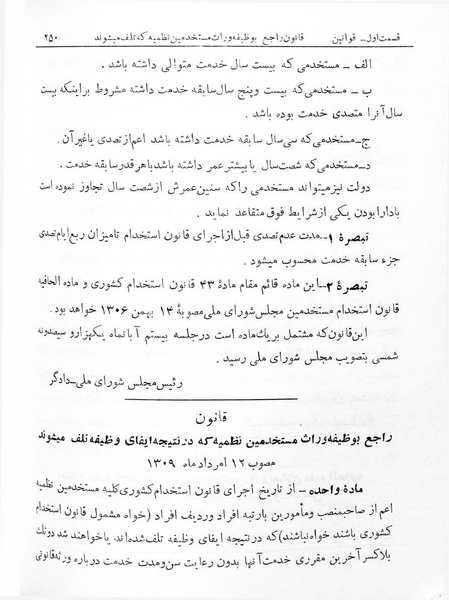 قسمت اول - قوانین قانون راجع بوظیفه وراث مستخدمین نظمیه که تلف میشوند ۲۵۰
الف - مستخدمی که بیست سال خدمت متوالی داشته باشد .
ب - مستخدمی که بیست وپنج سال سابقه خدمت داشته مشروط براینکه بیست
سال آنرا متصدی خدمت بوده باشد .
ج - مستخدمی که سی سال سابقه خدمت داشته باشد اعم از تصدی یا غیرآن .
د - مستخدمی که شصت سال یا بیشتر عمر داشته باشد با هر قدر سابقه خدمت
دولت نیز میتواند مستخدمی را که سنین عمرش از شصت سال تجاوز نموده است
با دارا بودن یکی از شرایط فوق متقاعد نماید .
تبصرهٔ ۱ - مدت عدم تصدی قبل از اجرای قانون استخدام تا میزان ربع ایام تصدی
جزء سابقه خدمت محسوب میشود .
تبصرهٔ ۲ - این ماده قائم مقام مادهٔ ۴۳ قانون استخدام کشوری و ماده الحاقیه
قانون استخدام مستخدمین مجلس شورای ملی مصوبهٔ ۱۴ بهمن ۱۳۰۶ خواهد بود .
این قانون که مشتمل بریك ماده است در جلسه بیستم آبانماه یکهزار و سیصد و نه
شمسی بتصویب مجلس شورای ملی رسید .
رئیس مجلس شورای ملی - دادگر
قانون
راجع بوظیفه وراث مستخدمین نظمیه که در نتیجه ایفای وظیفه تلف میشوند
مصوب ۱۲ امرداد ماه ۱۳۰۹
مادهٔ واحده - از تاریخ اجرای قانون استخدام کشوری کلیه مستخدمین نظمیه
اعم از صاحبمنصب ومأمورین بارتبه افراد وردیف افراد (خواه مشمول قانون استخدام
کشوری باشند خواه نباشند) که در نتیجه ایفای وظیفه تلف شده اند یا خواهند شد دو ثلث
بلاکسر آخرین مقرری خدمت آنها بدون رعایت سن ومدت خدمت درباره ورثه قانونی